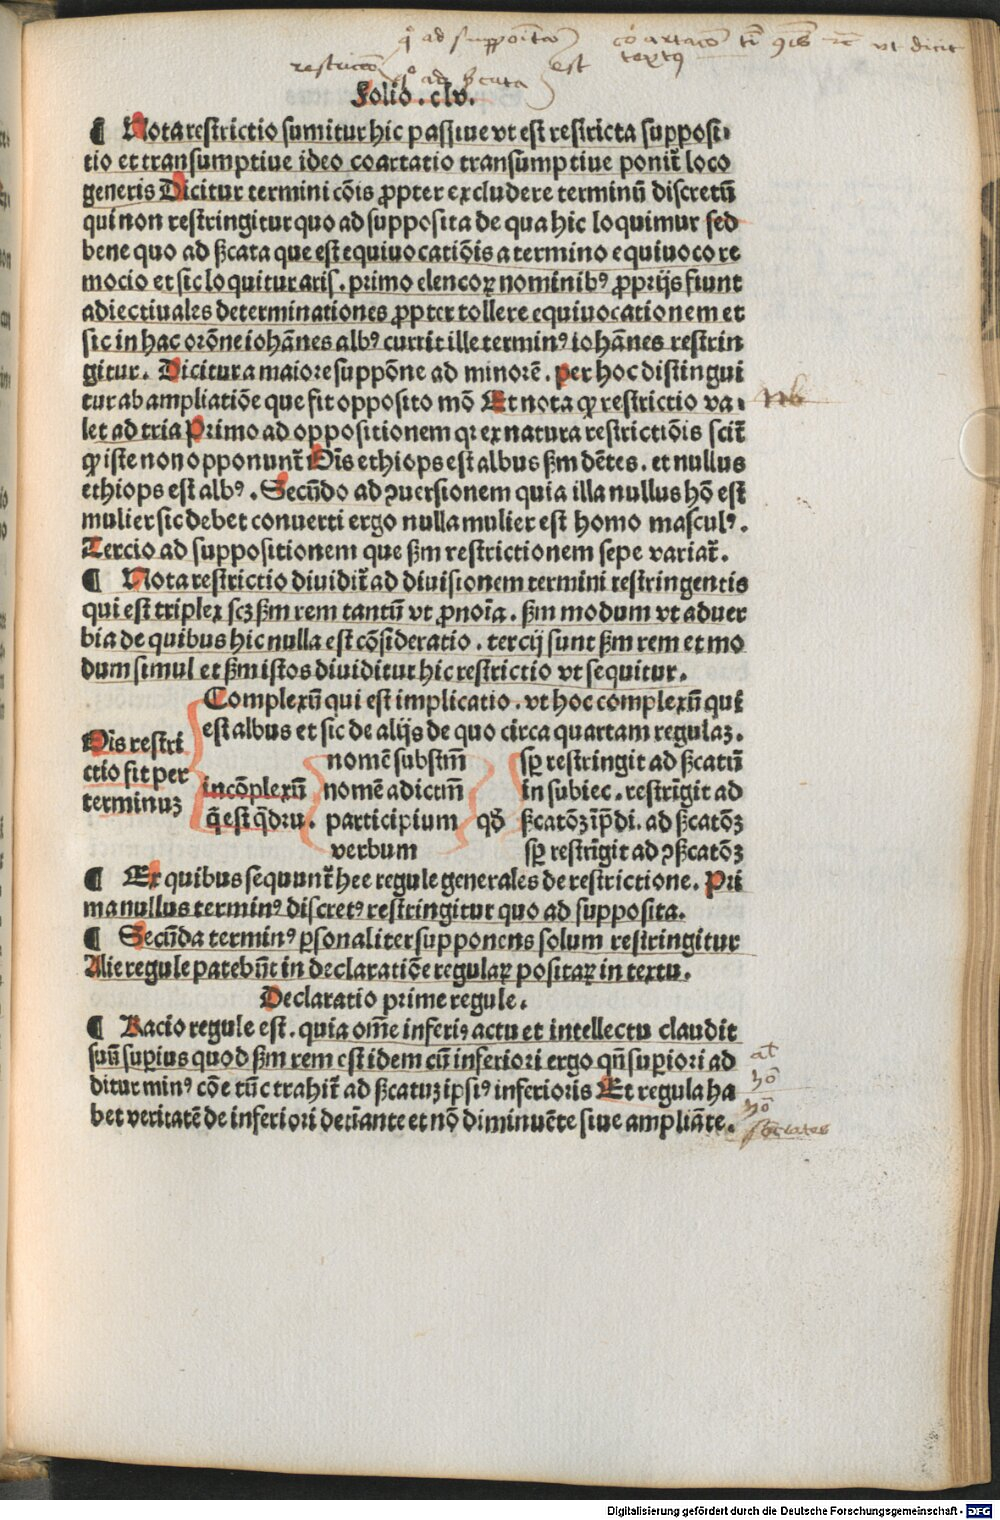 qͦ ad suppoita coartaco ti ꝯis ut dicit
restriccio est textꝰ
qͦ ad
Folio. clv.
¶ Nota restrictio sumitur hic passiue vt est restricta supposi⸗
tio et transumptiue ideo coartatio transumptiue ponit̃ loco
generis Dicitur termini cōis ꝓpter excludere terminū discretū
qui non restringitur quo ad supposita de qua hic loquimur sed
bene quo ad ßcata que est equiuocatiōis a termino equiuoco re
mocio et sic loquitur aris. primo elencoꝝ nominibꝰ ꝓprijs fiunt
adiectiuales determinationes ꝓpter tollere equiuocationem et
sic in hac orōne iohānes albꝰ currit ille terminꝰ iohānes restrin
gitur. Dicitur a maiore suppōne ad minorē. per hoc distingui
tur ab ampliatiōe que fit opposito mō Et nota ꝙ restrictio va⸗ Nb
let ad tria Primo ad oppositionem qꝛ ex natura restrictiōis scit̃
ꝙ iste non opponunt̃ Oīs ethiops est albus ßm dētes. et nullus
ethiops est albꝰ. Secūdo ad ꝯuersionem quia illa nullus hō est
mulier sic debet conuerti ergo nulla mulier est homo masculꝰ.
Tercio ad suppositionem que ßm restrictionem sepe variat̃.
¶ Nota restrictio diuidit̃ ad diuisionem termini restringentis
qui est triplex scꝫ ßm rem tantū vt ꝓnoīa. ßm modum vt aduer
bia de quibus hic nulla est cōsideratio. tercij sunt ßm rem et mo
dum simul et ßm istos diuiditur hic restrictio vt sequitur.
Complexū qui est implicatio. vt hoc complexū qui
est albus et sic de alijs de quo circa quartam regulaꝫ.
Oīs restri
ctio fit per
terminuꝫ
incōplexū
q̄ est q̄dru.
nomē substm̄ sꝑ restringit ad ßcatū
nomē adictm̄ in subiec. restrīgit ad
participium qd̓ ßcatōꝫ ip̄di. ad ßcatōꝫ
verbum sꝑ restrīgit ad ꝯßcatōꝫ
¶ Ex quibus sequunt̃ hee regule generales de restrictione. Pri
ma nullus terminꝰ discretꝰ restringitur quo ad supposita.
¶ Secūda terminꝰ ꝑsonaliter supponens solum restringitur
Alie regule patebūt in declaratiōe regulaꝝ positaꝝ in textu.
Declaratio prime regule.
¶ Racio regule est. quia om̄e inferiꝰ actu et intellectu claudit
suū suꝑius quod ßm rem est idem cū inferiori ergo qn̄ suꝑiori ad al
ditur minꝰ cōe tūc trahit̃ ad ßcatuꝫ ipsiꝰ inferioris Et regula ha hō
bet veritatē de inferiori det̓iante et nō diminuēte siue ampliāte. hō
sortes